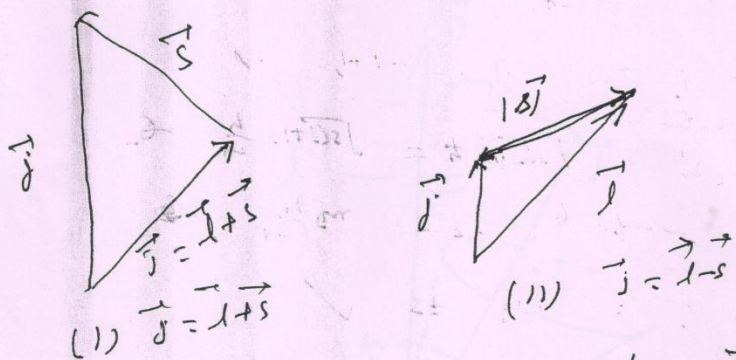 s⃗
j⃗
j⃗ = l⃗+s⃗
(1) j⃗ = l⃗+s⃗
|s⃗|
j⃗
l⃗
(11) j⃗ = l⃗-s⃗